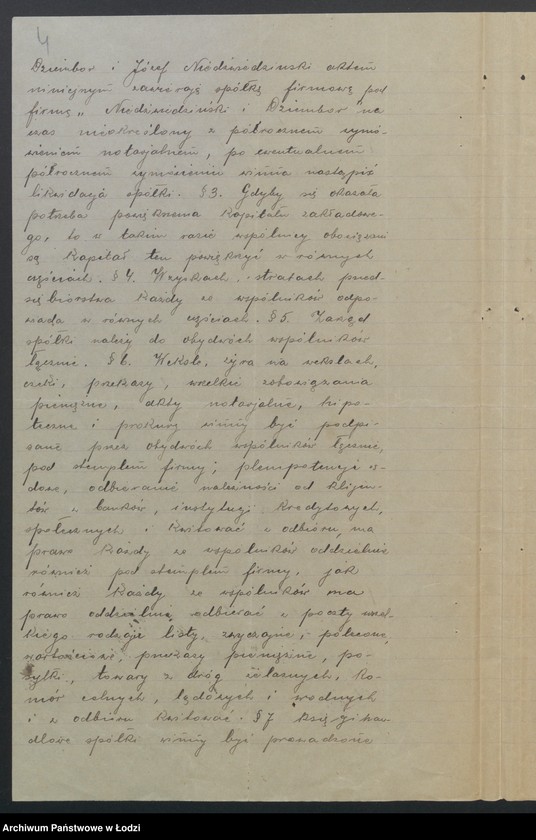 4
Dziembor i Józef Niedźwiedziński aktem
niniejszym zawierają spółkę firmową pod
firmą „Niedźwiedziński i Dziembor" na
czas nieokreślony z półrocznem wymó-
wieniem notarjalnem, po ewentualnem
półrocznem wymówieniu winna nastąpić
likwidacja spółki. § 3. Gdyby się okazała
potrzeba powiększenia kapitału zakładowe-
go, to w takim razie wspólnicy obowiązani
są kapitał ten powiększyć w równych
częściach. § 4. W zyskach i stratach przed-
siębiorstwa każdy ze wspólników odpo-
wiada w równych częściach. § 5. Zarząd
spółki należy do obydwóch wspólników
łącznie. § 6. Weksle, żyra na wekslach,
czeki, przekazy, wszelkie zobowiązania
pieniężne, akty notarjalne, hipo-
teczne i prokury winny być podpi-
sane przez obydwóch wspólników łącznie,
pod stemplem firmy; plenipotencje są-
dowe, odbieranie należności od klijen-
tów z banków, instytucji kredytowych,
społecznych i kwitować z odbioru, ma
prawo każdy ze wspólników oddzielnie
również pod stemplem firmy, jak
również każdy ze wspólników ma
prawo oddzielnie odbierać z poczty wszel-
kiego rodzaju listy, zwyczajne, polecone,
wartościowe, przekazy pieniężne, po-
syłki, towary z dróg żelaznych, ko-
mór celnych, lądowych i wodnych
i z odbioru kwitować. § 7 Księgi han-
dlowe spółki winny być prowadzone
Archiwum Państwowe w Łodzi